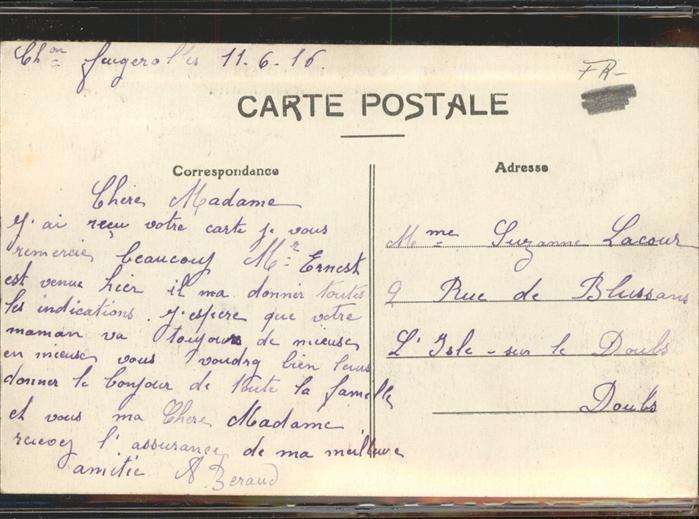 Chon Feugerolles 11.6.16.
FR-
CARTE POSTALE
Correspondance
Chère Madame
J'ai reçu votre carte je vous
remercie beaucoup Mr Ernest
est venue hier il ma donner toutes
les indications. J'espere que votre
maman va toujour de mieuse
en mieuse vous voudrq bien leurs
donner le bonjour de toute la famelle
et vous ma Chere Madame
recevez l'assurance de ma meilleure
amitie A Beraud
Adresse
Mme Suzanne Lacour
9 Rue de Blussans
L'Isle-sur le Doubs
Doubs